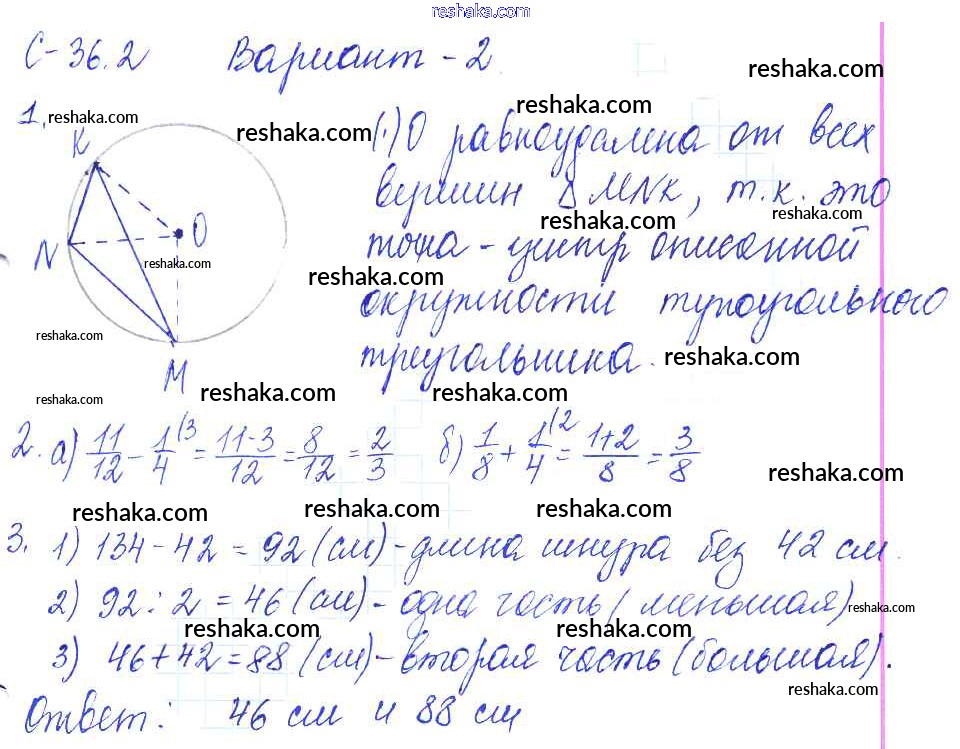 reshaka.com
С-36.2 Вариант - 2.
reshaka.com
1. reshaka.com reshaka.com reshaka.com
K (·) О равноудалена от всех
вершин Δ MNK, т.к. это
reshaka.com reshaka.com
N O точка - центр описанной
reshaka.com reshaka.com
окружности тупоугольного
reshaka.com
M треугольника. reshaka.com
reshaka.com reshaka.com reshaka.com
2. а) 11/12 - 1/4 (3 = 11-3/12 = 8/12 = 2/3 б) 1/8 + 1/4 (2 = 1+2/8 = 3/8
reshaka.com
reshaka.com reshaka.com reshaka.com
3. 1) 134 - 42 = 92 (см) - длина шнура без 42 см.
2) 92 : 2 = 46 (см) - одна часть (меньшая) reshaka.com
reshaka.com reshaka.com
3) 46 + 42 = 88 (см) - вторая часть (большая).
reshaka.com
Ответ: 46 см и 88 см
reshaka.com